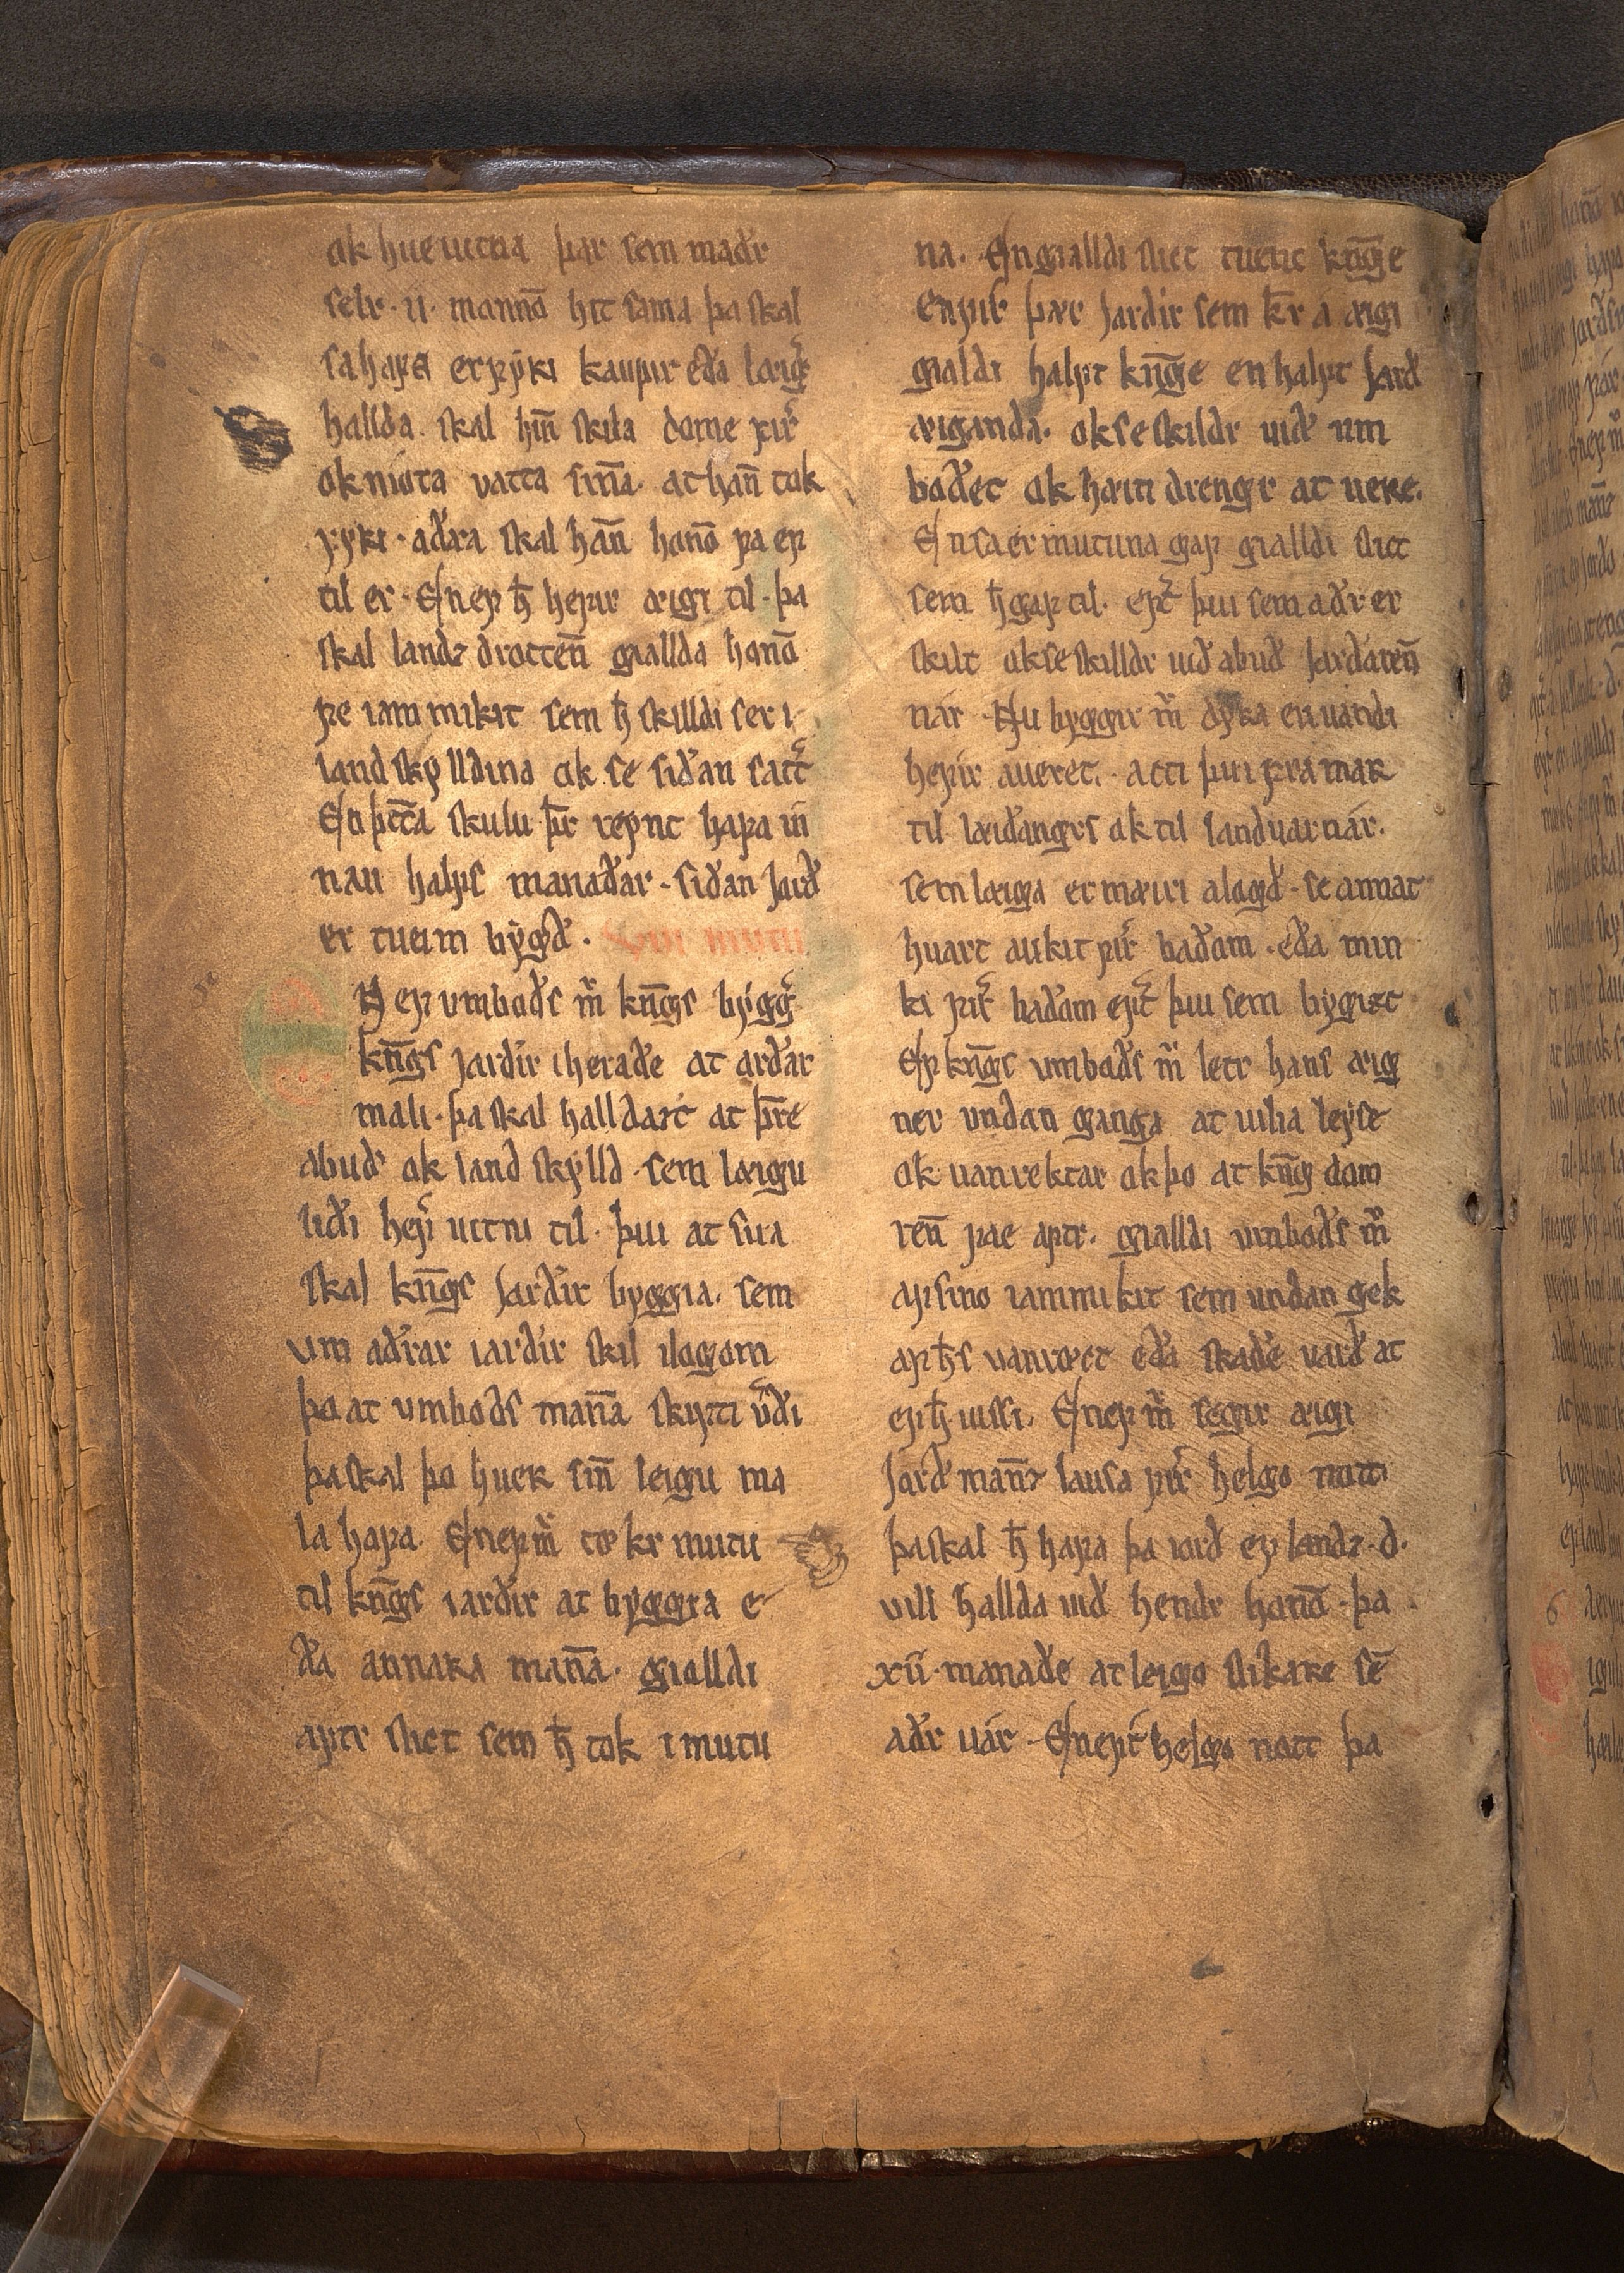 ok huetuetna þar sem madr
selr · ii · mannō hit sama þa skal
sa hafa er fyʀi kaupir eða læigir
hallda. skal hin̄ skila dome firir
ok niota vatta sin̄a. at han̄ tok
fyʀi · aðra skal han̄ honō fa ef
til er · En ef h̄ hefir æigi til · þa
skal landz drotten̄ giallda honō
fe iam mikit sem h̄ skilldi ser i
landskylldina ok se siðan satter
En þtt̄a skulu þr̄ repnt hafa in
nan halfs manaðar · siðan jord
er tueim bygð · Um mutu
EF vmboðs m̄ kn̄gs bygger
kn̄gs jarðir iheraðe at orðar
mali · þa skal halldazt at þr̄re
abuð ok landskylld · sem læigu
liði hefir uttni til · þui at sua
skal kn̄gs jarðir byggia. sem
vm aðrar iarðir skil ilogom
þo at vmboðs man̄a skipti verði
þa skal þo huerr sin̄ leigu ma
la hafa. En ef m̄ tøkr mutu
til kn̄gs iarðir at byggia e
ða annara man̄a. gialldi
aptr slict sem h̄ tok i mutu
na. En gialldi slict tuent kn̄ge
En fur þær jarðir sem kr̄ a æigi
gialdi halft kn̄ge en halft jarð
æiganda. ok se skildr uið um
boðet ok hæiti drengr at uerre.
En sa er mutuna gaf gialldi slict
sem h̄ gaf til. eptir þui sem aðr er
skilt ok se skilldr uið abuð jardaren̄
nar · Nu byggir m̄ dyʀa en uandi
hefir auerit. · atti þui fram ar
til læiðangrs ok til landuarnar.
sem læiga er mæiri alogð · se annat
huart aukit firir baðom · eða min
ki firir baðom eptir þui sem bygizt
Ef kn̄gs vmboðs m̄ letr hans æig
ner vndan ganga at uilia leyse
ok vanrektar ok þo at kn̄g dom
ren̄ fae aptr. gialldi vmboðs m̄
af sino iammikit sem undan gek
af h̄s vanrøct eða skaðe uarð at
ef h̄ uissi. En ef m̄ segir æigi
jorð man̄z lausa firir helgo nott
þa skal h̄ hafa þa iorð ef landz · d.
vill hallda uið hendr honō · þa
xii · manaðe at leigo slikare sē
aðr uar · En eptir helgo nott þa